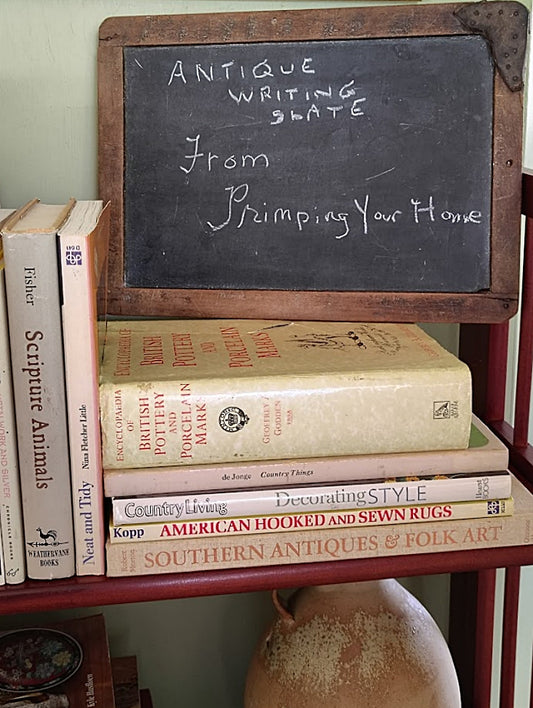 ANTIQUE
WRITING
SLATE
From
Primping Your Home
Fisher
Scripture Animals
WEATHERVANE
BOOKS
D 643
Nina Fletcher Little
Neat and Tidy
ENCYCLOPAEDIA OF
BRITISH
POTTERY
AND
PORCELAIN
MARKS
ENCYCLOPAEDIA
OF
BRITISH
POTTERY
AND
PORCELAIN
MARKS
GEOFFREY A.
GODDEN
de Jonge Country Things
Country Living Decorating STYLE
Hearst
BOOKS
Kopp AMERICAN HOOKED AND SEWN RUGS
Robert
Morton
SOUTHERN ANTIQUES & FOLK ART
AND SILVER
CHRONICLE BOOKS